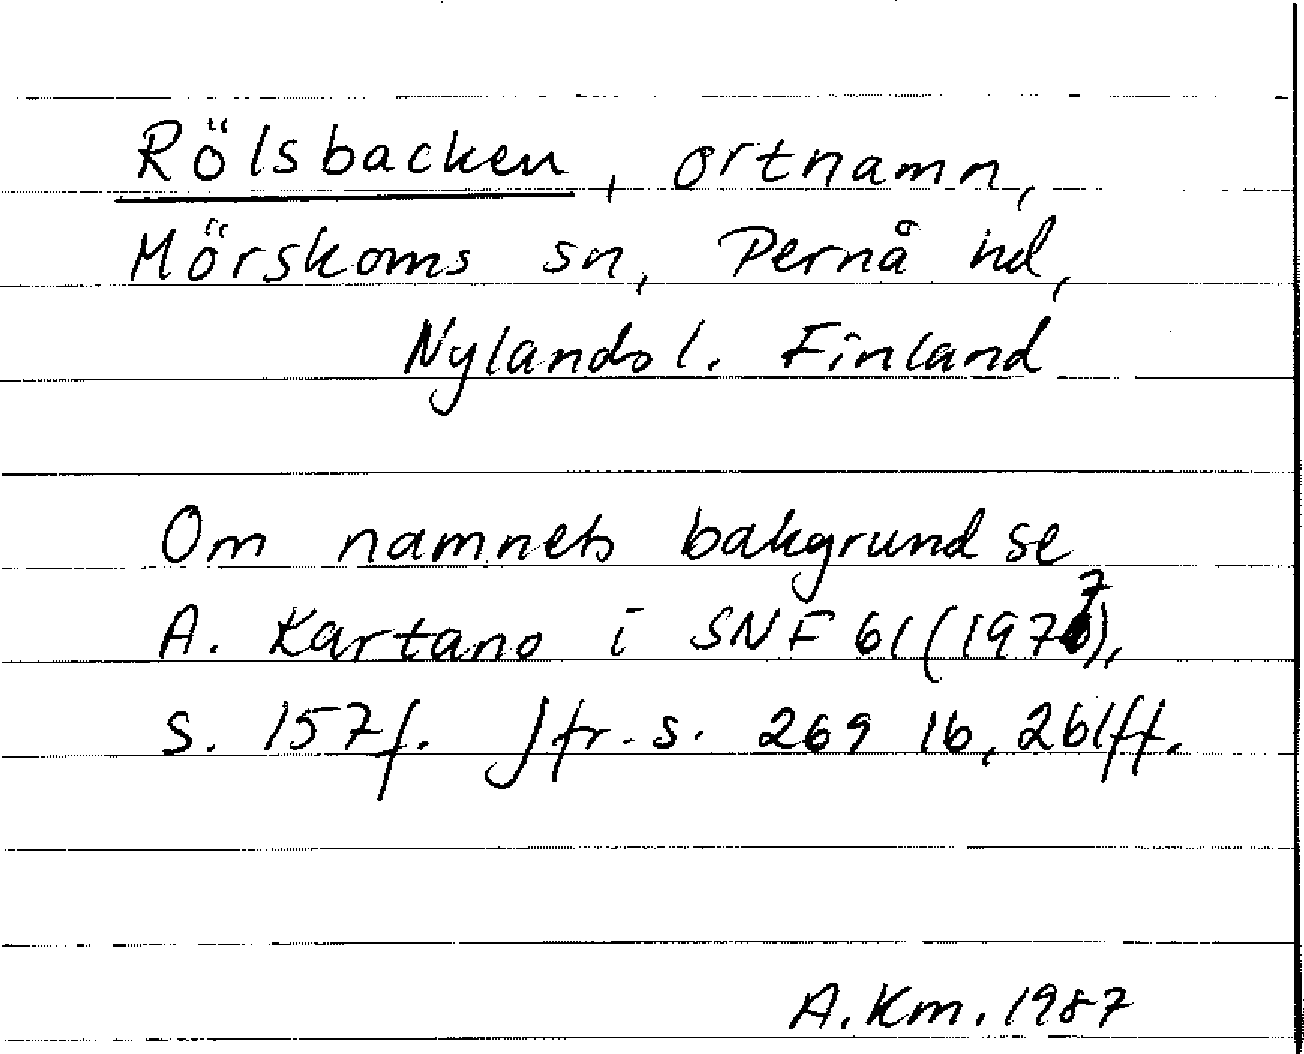 Rölsbacken, ortnamn,
Mörskoms sn, Pernå hd,
Nylands l. Finland
Om namnets bakgrund se
A. Kartano i SNF 61 (1977),
s. 157f. Jfr. s. 269 16, 261ff.
A. Km. 1987